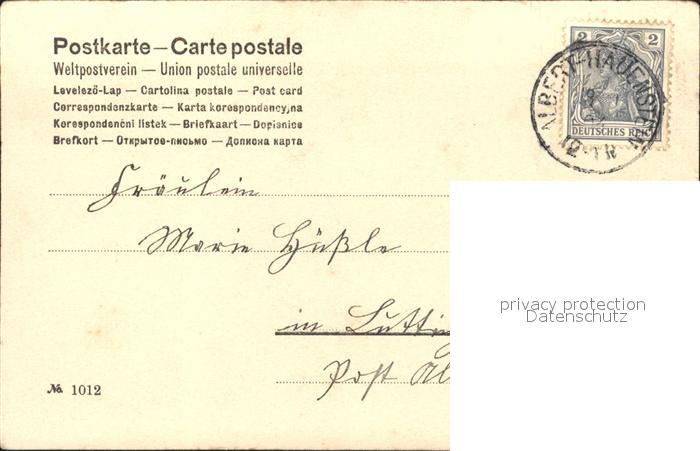 Postkarte — Carte postale
Weltpostverein — Union postale universelle
Levelező-Lap — Cartolina postale — Post card
Correspondenzkarte — Karta korespondencyjna
Korespondenční lístek — Briefkaart — Dopisnice
Brefkort — Открытое-письмо — Дописна карта
2 2
DEUTSCHES REICH
ALBERT-HAUENSTEIN
Fräulein
Marie Hüßle
in Lutti
Post Al
privacy protection
Datenschutz
№ 1012